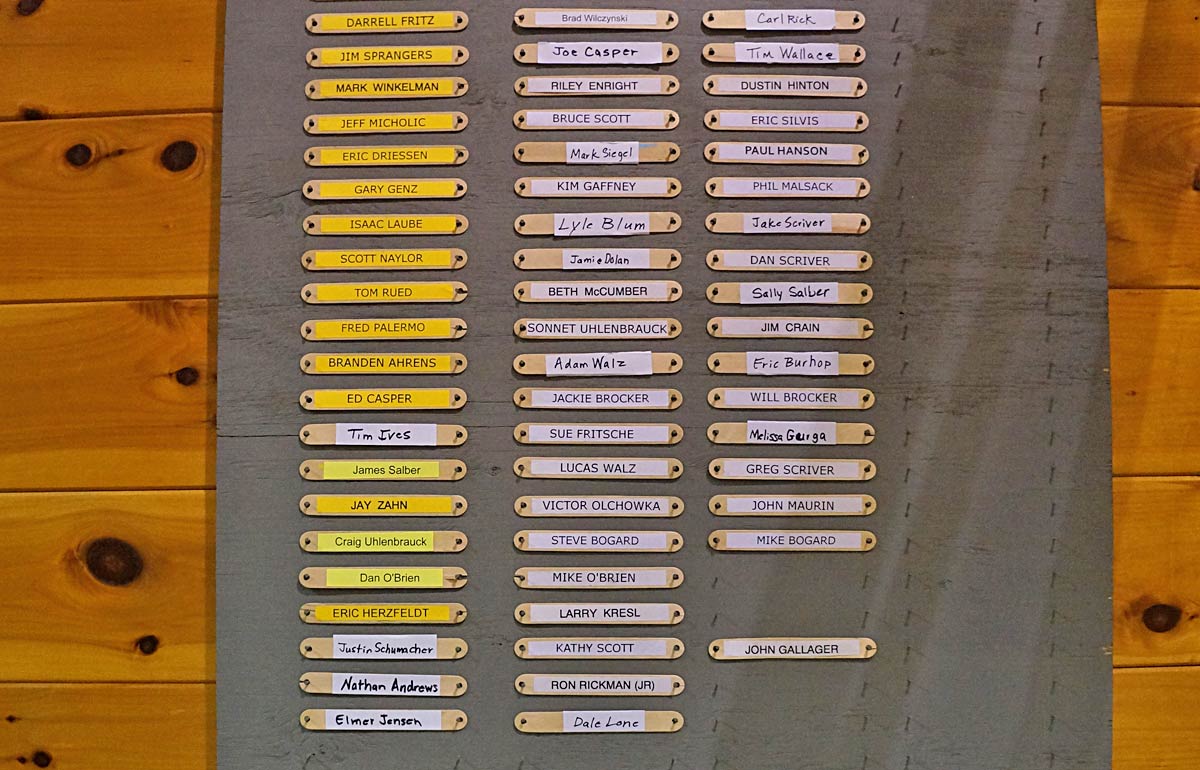 DARRELL FRITZ
JIM SPRANGERS
MARK WINKELMAN
JEFF MICHOLIC
ERIC DRIESSEN
GARY GENZ
ISAAC LAUBE
SCOTT NAYLOR
TOM RUED
FRED PALERMO
BRANDEN AHRENS
ED CASPER
Tim Ives
James Salber
JAY ZAHN
Craig Uhlenbrauck
Dan O'Brien
ERIC HERZFELDT
Justin Schumacher
Nathan Andrews
Elmer Jensen
Brad Wilczynski
Joe Casper
RILEY ENRIGHT
BRUCE SCOTT
Mark Siegel
KIM GAFFNEY
Lyle Blum
Jamie Dolan
BETH McCUMBER
SONNET UHLENBRAUCK
Adam Walz
JACKIE BROCKER
SUE FRITSCHE
LUCAS WALZ
VICTOR OLCHOWKA
STEVE BOGARD
MIKE O'BRIEN
LARRY KRESL
KATHY SCOTT
RON RICKMAN (JR)
Dale Lone
Carl Rick
Tim Wallace
DUSTIN HINTON
ERIC SILVIS
PAUL HANSON
PHIL MALSACK
Jake Scriver
DAN SCRIVER
Sally Salber
JIM CRAIN
Eric Burhop
WILL BROCKER
Melissa
GREG SCRIVER
JOHN MAURIN
MIKE BOGARD
JOHN GALLAGER